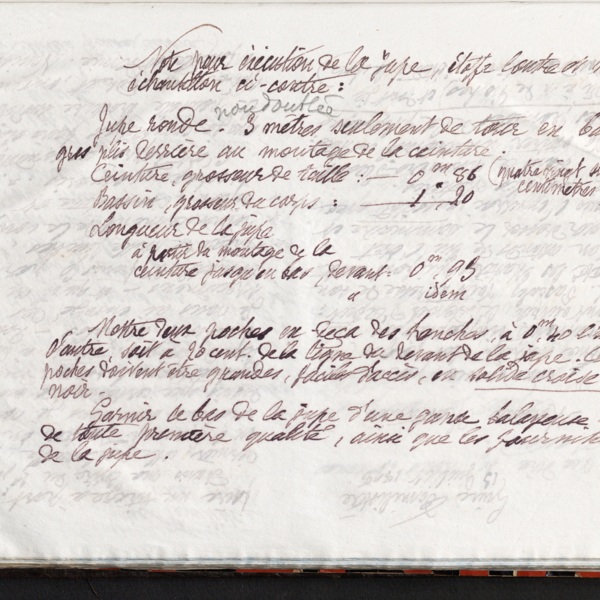 Note pour exécution de la jupe, étoffe loutre
échantillon ci-contre :
non doublée
Jupe ronde. 3 mètres seulement de tour en ba
gros plis derrière au montage de la ceinture.
Ceinture, grosseur de taille : — 0m 86 (quatre vingt s
centimètres
Bassin, grosseur du corps : — 1m 20
Longueur de la jupe
à partir du montage de la
ceinture jusqu'en bas, devant. 0m, 93
idem
Mettre deux poches en deça des hanches, à 0m, 40 l'
d'autre, soit à 20 cent. de la ligne du devant de la jupe. Ce
poches doivent être grandes, faciles d'accès, en solide croisé
noir.
Garnir le bas de la jupe d'une ganse balayeuse
de toute première qualité, ainsi que les fournit
de la jupe.